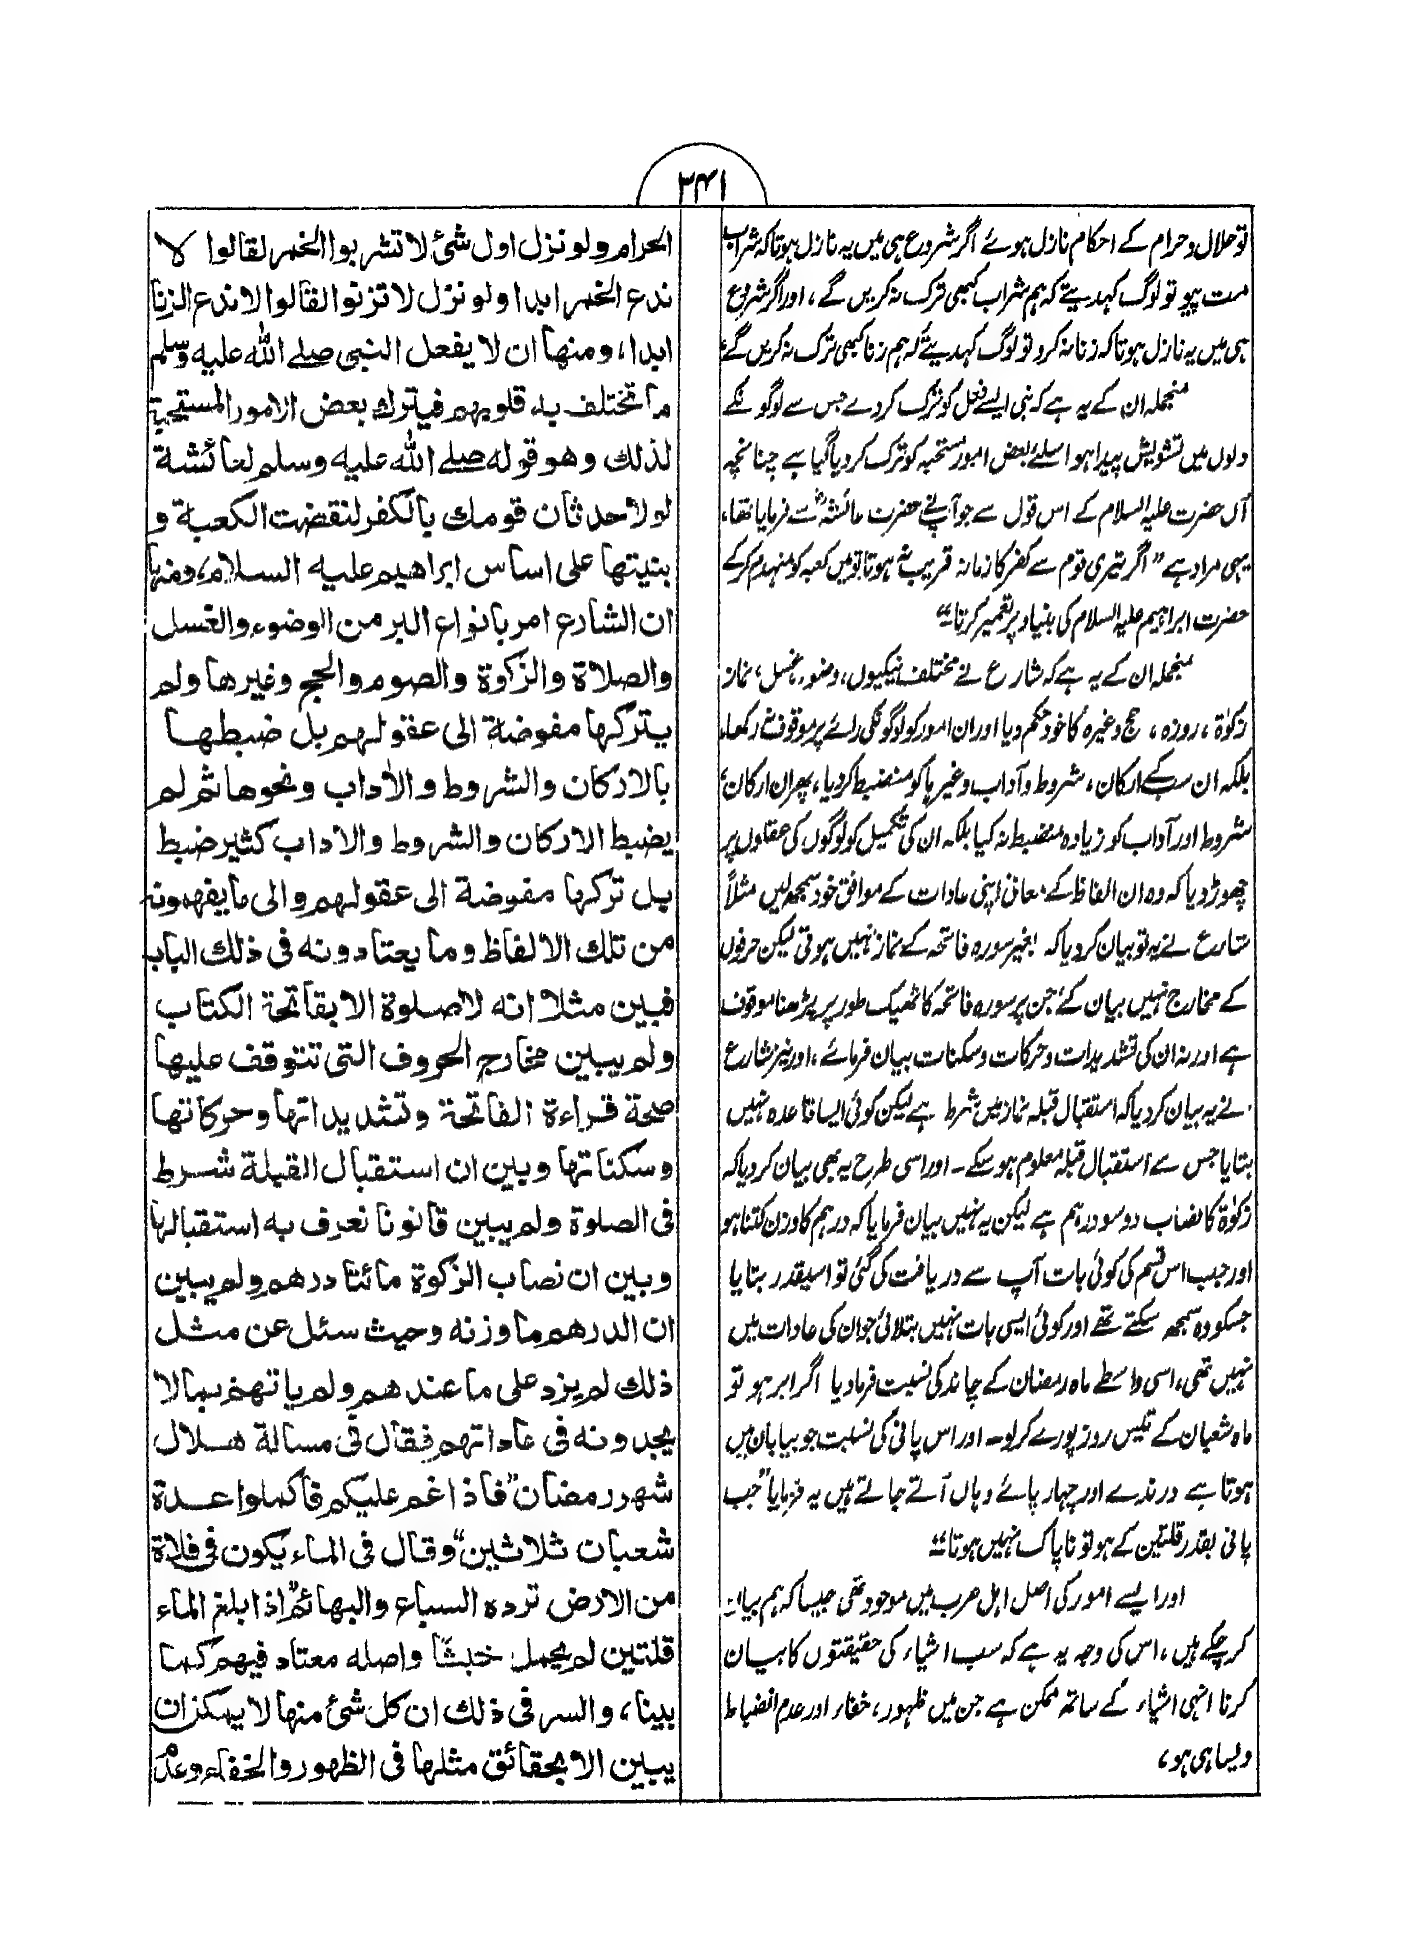 ۳۴۱
تو حلال و حرام کے احکام نازل ہوئے اگر شروع ہی میں یہ نازل ہوتا کہ شراب
مت پیو تو لوگ کہدیتے کہ ہم شراب کبھی ترک نہ کریں گے، اور اگر شروع
ہی میں یہ نازل ہوتا کہ زنا نہ کرو تو لوگ کہدیتے کہ ہم زنا کبھی ترک نہ کریں گے؛
منجملہ ان کے یہ ہے کہ نبی ایسے فعل کو ترک کر دے جس سے لوگونکے
دلوں میں تشویش پیدا ہو اسلئے بعض امور مستحبہ کو ترک کر دیا گیا ہے چنانچہ
آں حضرت علیہ السلام کے اس قول سے جو آپ نے حضرت عائشہؓ سے فرمایا تھا،
یہی مراد ہے "اگر تیری قوم سے کفر کا زمانہ قریب نہ ہوتا تو میں کعبہ کو منہدم کر کے
حضرت ابراہیم علیہ السلام کی بنیاد پر تعمیر کرتا"
منجملہ ان کے یہ ہے کہ شارع نے مختلف نیکیوں، وضوء، غسل، نماز
زکوٰۃ، روزہ، حج وغیرہ کا خود حکم دیا اور ان امور کو لوگونکی رائے پر موقوف نہ رکھا،
بلکہ ان سب کے ارکان، شروط و آداب وغیرہا کو منضبط کر دیا، پھر ان ارکان،
شروط اور آداب کو زیادہ منضبط نہ کیا بلکہ ان کی تکمیل کو لوگوں کی عقلوں پر
چھوڑ دیا کہ وہ ان الفاظ کے معانی اپنی عادات کے موافق خود سمجھ لیں مثلاً
شارع نے یہ تو بیان کر دیا کہ بغیر سورہ فاتحہ کے نماز نہیں ہوتی لیکن حرفوں
کے مخارج نہیں بیان کئے جن پر سورہ فاتحہ کا ٹھیک طور پر پڑھنا موقوف
ہے اور نہ ان کی تشدیدات و حرکات و سکنات بیان فرمائے، اور نیز شارع
نے یہ بیان کر دیا کہ استقبال قبلہ نماز میں شرط ہے لیکن کوئی ایسا قاعدہ نہیں
بتایا جس سے استقبال قبلہ معلوم ہو سکے۔ اور اسی طرح یہ بھی بیان کر دیا کہ
زکوٰۃ کا نصاب دو سو درہم ہے لیکن یہ نہیں بیان فرمایا کہ درہم کا وزن کتنا ہو
اور جب اس قسم کی کوئی بات آپ سے دریافت کی گئی تو اسیقدر بتایا
جسکو وہ سمجھ سکتے تھے اور کوئی ایسی بات نہیں بتلائی جو ان کی عادات میں
نہیں تھی، اسی واسطے ماہ رمضان کے چاند کی نسبت فرما دیا اگر ابر ہو تو
ماہ شعبان کے تیس روز پورے کر لو۔ اور اس پانی کی نسبت جو بیابان میں
ہوتا ہے درندے اور چہار پائے وہاں آتے جاتے ہیں یہ فرمایا "جب
پانی بقدر قلتین کے ہو تو ناپاک نہیں ہوتا"
اور ایسے امور کی اصل اہل عرب میں موجود تھی جیسا کہ ہم بیان
کر چکے ہیں، اس کی وجہ یہ ہے کہ سب اشیاء کی حقیقتوں کا بیان
کرنا انہی اشیاء کے ساتھ ممکن ہے جن میں ظہور، خفاء اور عدم انضباط
ویسا ہی ہو،
الحرام ولو نزل اول شئ لا تشربوا الخمر لقالوا لا
ندع الخمر ابدا ولو نزل لا تزنوا لقالوا لا ندع الزنا
ابدا، ومنها ان لا يفعل النبى صلے الله عليه وسلم
ما تختلف به قلوبهم فيترك بعض الامور المستحبة
لذلك وهو قوله صلے الله عليه وسلم لعائشة
لولا حدثان قومك بالكفر لنقضت الكعبة و
بنيتها على اساس ابراهيم عليه السلام، ومنها
ان الشارع امر بانواع البر من الوضوء والغسل
والصلاة والزكوة والصوم والحج وغيرها ولم
يتركها مفوضة الى عقولهم بل ضبطها
بالاركان والشروط والاٰداب ونحوها ثم لم
يضبط الاركان والشروط والاداب كثير ضبط
بل تركها مفوضة الى عقولهم والى ما يفهمونه
من تلك الالفاظ وما يعتادونه فى ذلك الباب
فبين مثلا انه لا صلوة الا بفاتحة الكتاب
ولم يبين مخارج الحروف التى تتوقف عليها
صحة قراءة الفاتحة وتشديداتها وحركاتها
وسكناتها وبين ان استقبال القبلة شرط
فى الصلوة ولم يبين قانونا نعرف به استقبالها
وبين ان نصاب الزكوة مائتا درهم ولم يبين
ان الدرهم ما وزنه وحيث سئل عن مثل
ذلك لم يزد على ما عندهم ولم ياتهم بما لا
يجدونه فى عاداتهم فقال فى مسالة هلال
شهر رمضان "فاذا غم عليكم فاكملوا عدة
شعبان ثلاثين" وقال فى الماء يكون فى فلاة
من الارض ترده السباع والبهائم "اذا بلغ الماء
قلتين لم يحمل خبثًا" واصله معتاد فيهم كما
بينا، والسر فى ذلك ان كل شئ منها لا يمكن ان
يبين الا بحقائق مثلها فى الظهور والخفاء وعدم